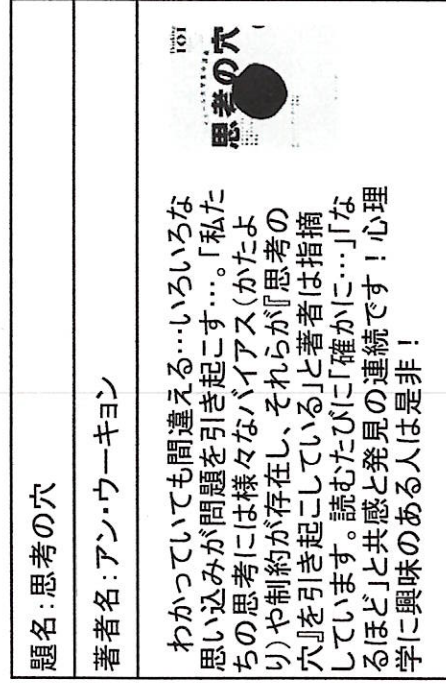 題名:思考の穴
著者名:アン・ウーキョン
わかっていても間違える…いろいろな
思い込みが問題を引き起こす…。「私た
ちの思考には様々なバイアス(かたよ
り)や制約が存在し、それらが『思考の
穴』を引き起こしている」と著者は指摘
しています。読むたびに「確かに…」「な
るほど」と共感と発見の連続です!心理
学に興味のある人は是非!
Thinking
101
思考の穴